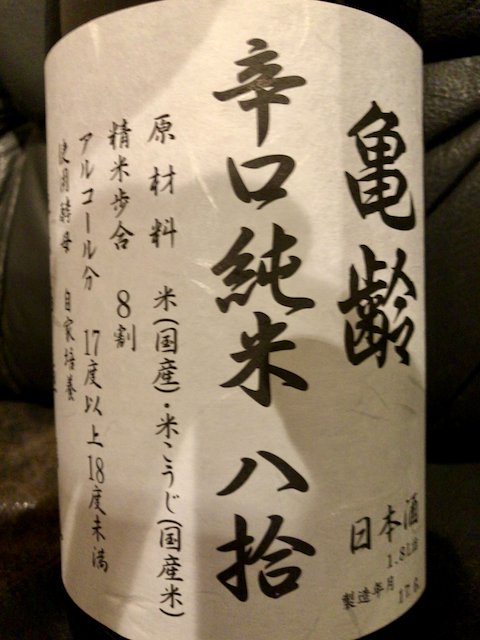 亀齢
日本酒
1.8L詰
製造年月 17.6.
辛口純米 八拾
原材料 米(国産)・米こうじ(国産米)
精米歩合 8割
アルコール分 17度以上18度未満
使用酵母 自家培養